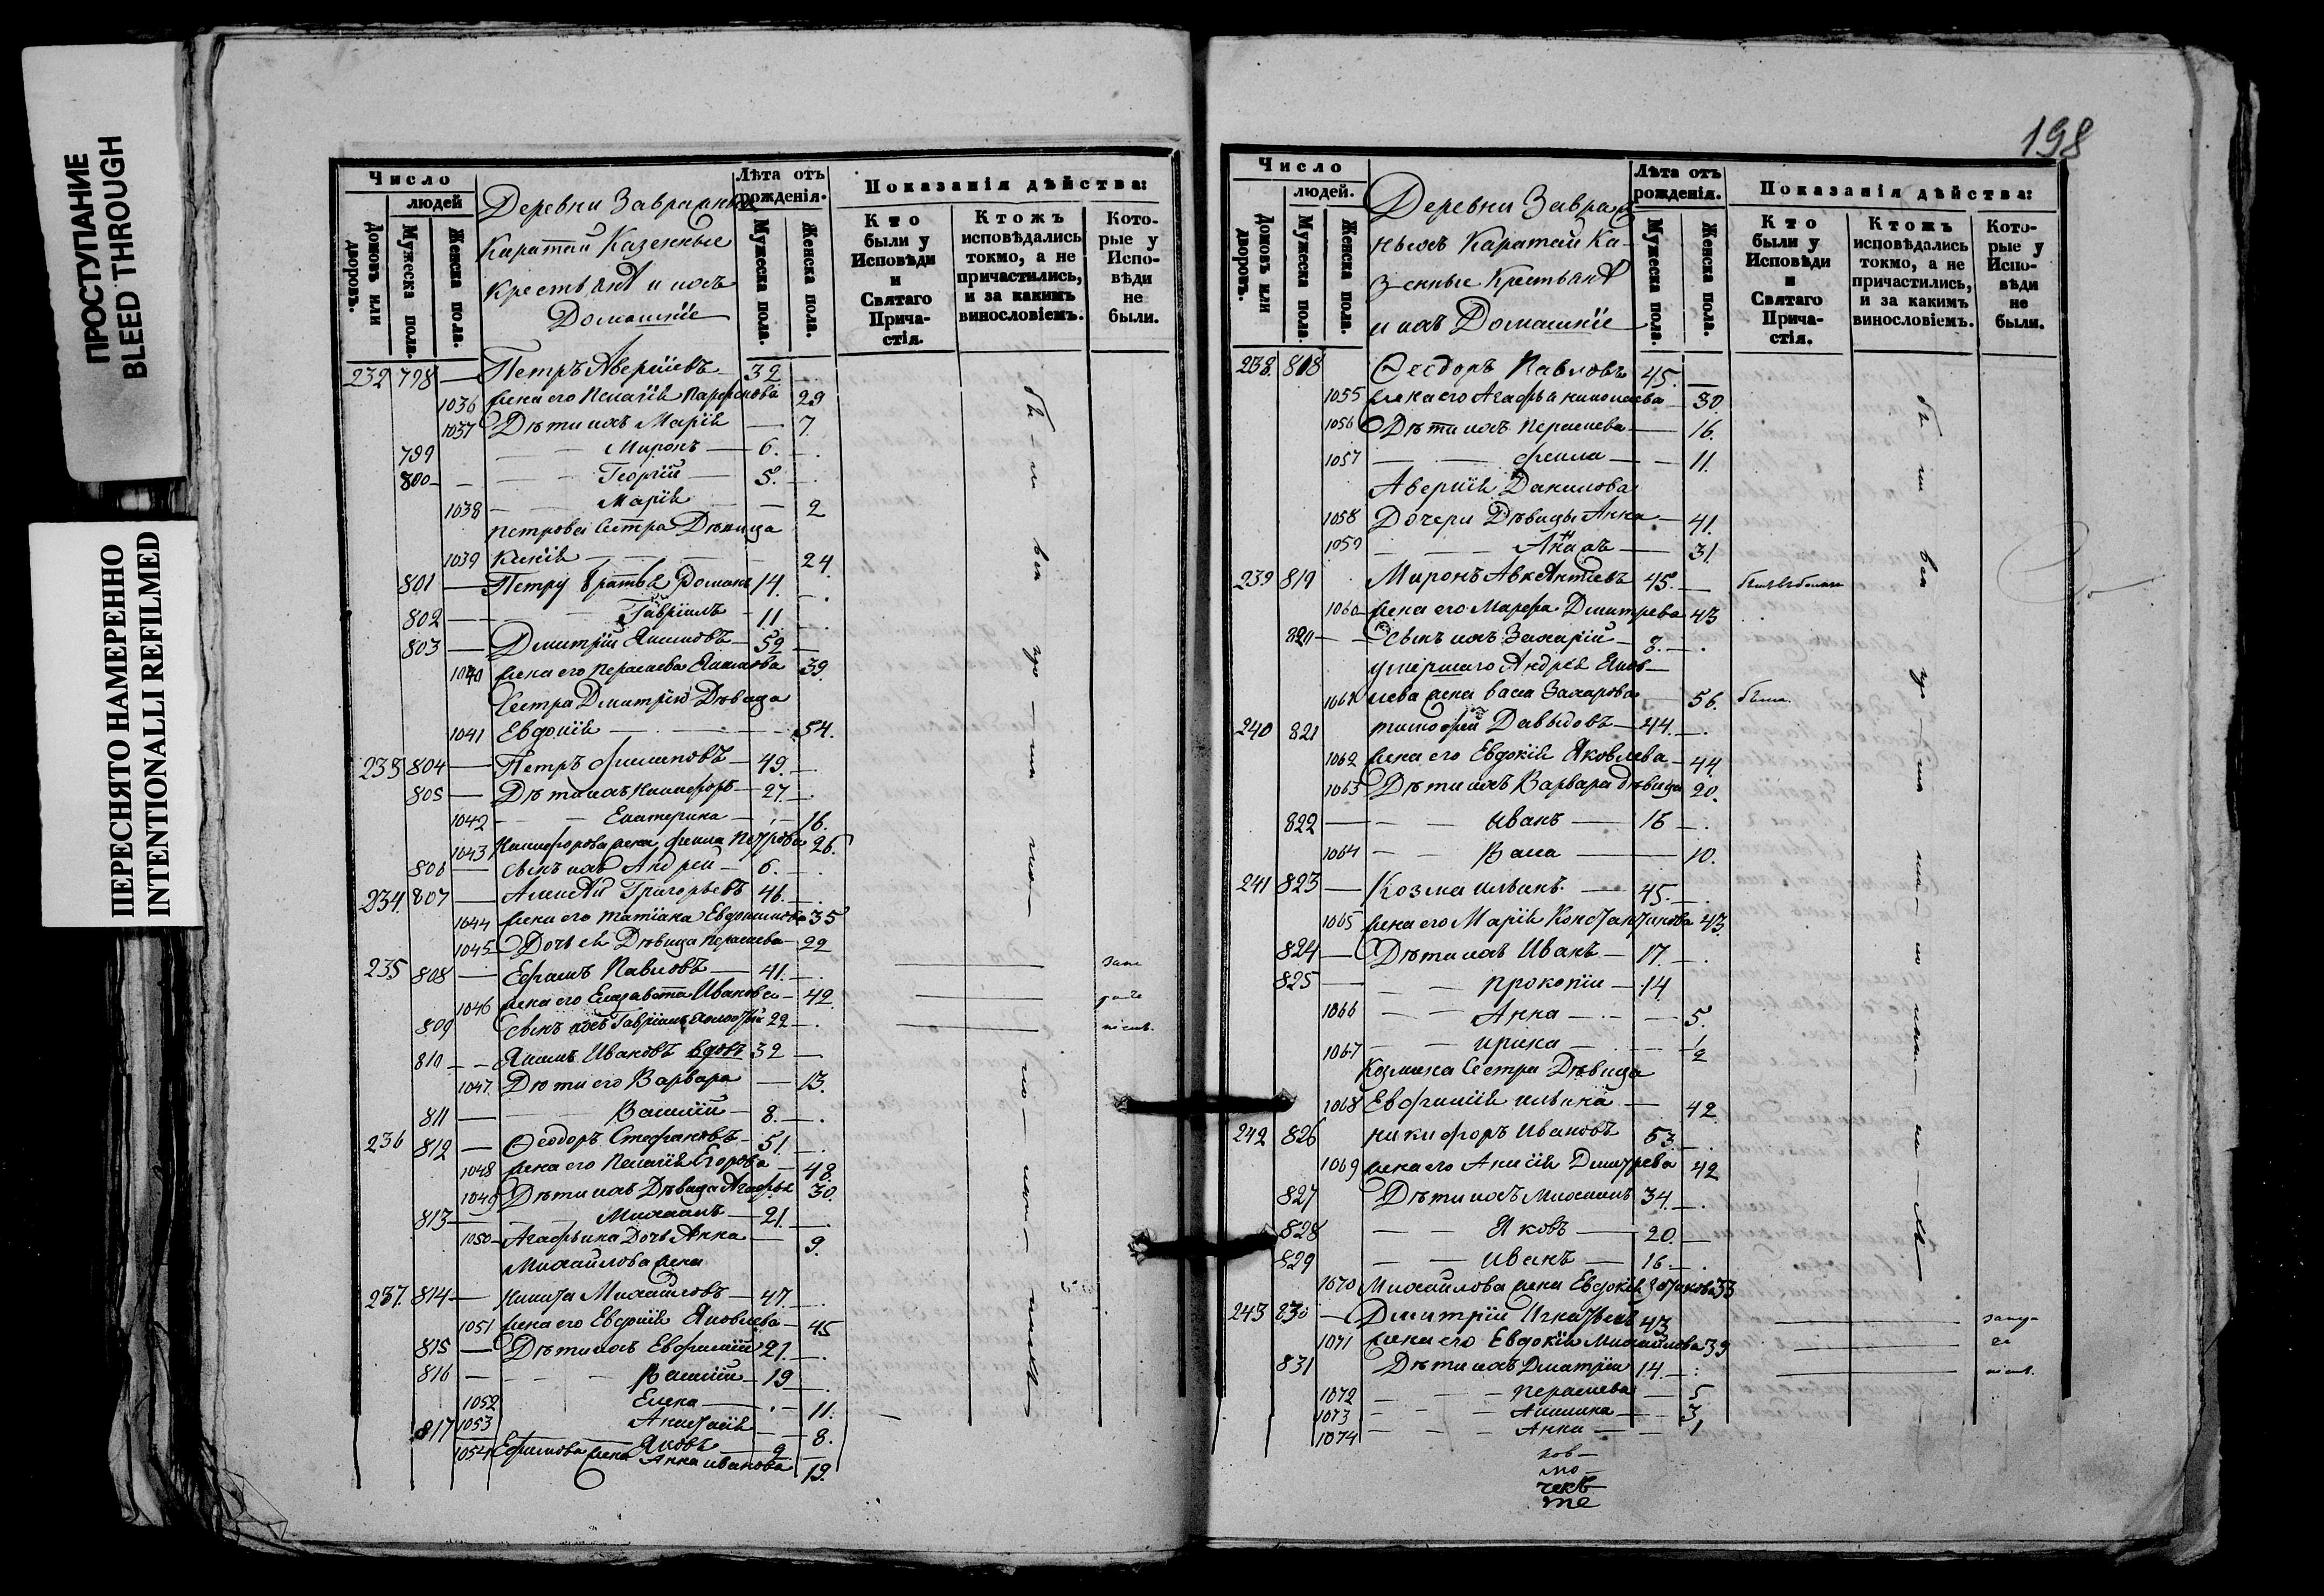 ПРОСТУПАНИЕ
BLEED THROUGH
ПЕРЕСНЯТО НАМЕРЕННО
INTENTIONALLI REFILMED
Число
людей
Домовъ или дворовъ.
Мужеска пола.
Женска пола.
Деревни
Каратай Казенные
Крестьяня и ихъ
Домашнїе
Лѣта отъ рожденія.
Мужеска пола.
Женска пола.
Показанія дѣйства:
Кто были у Исповѣди и Святаго Причастія.
Ктожъ исповѣдались токмо, а не причастились, и за какимъ винословіемъ.
Которые у Исповѣди не были.
232 798 — Петръ Аверкіевъ 32
1036 жена его Пелагія Парфенова 29
1037 Дѣти ихъ Марія — 7
799 — Миронъ — 6.
800 — Георгій — 5.
1038 — Марія — 2
Петрова Сестра Дѣвица
1039 Ксенія — 24
801 — Петру братья Романъ 14.
802 — Гавріилъ — 11
803 — Дмитрій Якимовъ — 59
1040 жена его Параскева 39
Сестра Дмитрію Дѣвица
1041 Евдокія — 54.
233 804 — Петръ Филиповъ — 49.
805 — Дѣти ихъ Никифоръ — 27
1042 — Екатерина — 16.
1043 Никифорова жена Фекла Петрова 26.
806 — сынъ ихъ Андрей — 6.
234. 807 — Алексѣй Григорьевъ 46.
1044 жена его Татіана Евдокимова 35
1045 Дочь ея Дѣвица Параскева — 22
235 808 — Ефимъ Павловъ — 41.
1046 жена его Елизавета Иванова — 42
809 сынъ ихъ Гавріилъ 22
810 — Якимъ Ивановъ вдовъ 32
1047. Дѣти его Варвара — 13.
811 — Василій — 8.
236 812 — Ѳеодоръ Стефановъ — 51.
1048 жена его Пелагія Егорова — 48.
1049 Дѣти ихъ Дѣвица Агафья 30.
813 — Михаилъ — 21.
1050 — Агафьина Дочь Анна — 9.
Михайлова жена
237. 814 — Никита Михайловъ — 47.
1051 жена его Евфимія Яковлева — 45
815 — Дѣти ихъ Евфимій 21.
816 — Василій — 19
1052 Елена — 11.
1053 Анастасія — 8.
817 Яковъ — 9
1054 Ефимова жена Анна Иванова 19.
198
Число
людей.
Домовъ или дворовъ.
Мужеска пола.
Женска пола.
Деревни
Каратай Ка-
зенные Крестьяня
и ихъ Домашнїе
Лѣта отъ рожденія.
Мужеска пола.
Женска пола.
Показанія дѣйства:
Кто были у Исповѣди и Святаго Причастія.
Ктожъ исповѣдались токмо, а не причастились, и за какимъ винословіемъ.
Которые у Исповѣди не были.
238. 818 Ѳеодоръ Павловъ 45.
1055 жена его Агафья Николаева 30.
1056 Дѣти ихъ Параскева — 16.
1057 — Фекла — 11.
Аверкія Данилова
1058 Дочери Дѣвицы Анна — 41.
1059 — 31.
239 819 Миронъ Авксентіевъ 45.
1060 жена его Марфа Дмитрева 43
820 — сынъ ихъ Захарій — 8.
умершаго Андрея Яков-
1061 лева жена Васса Захарова 56.
240 821 Тимофей Давыдовъ — 44.
1062 жена его Евдокія Яковлева — 44.
1063 Дѣти ихъ Варвара дѣвица 20.
822 — Иванъ — 16
1064 — Васса — 10.
241 823 — Козма Ильинъ. — 45.
1065 жена его Марія Константинова 43.
824 — Дѣти ихъ Иванъ — 17.
825 — Прокопій — 14
1066 — Анна — 5.
1067 — Ирина — 1/2
Козмина Сестра Дѣвица
1068 Евфимія Ильина — 42
242 826 Никифоръ Ивановъ 53.
1069 жена его Анисія Дмитрева 42
827 Дѣти ихъ Михаилъ 34.
828 — Яковъ — 20.
829 — Иванъ — 16
1070 Михайлова жена Евдокія 33
243 830 — Дмитрій Игнатьевъ 43
1071 жена его Евдокія Михайлова 39
831 Дѣти ихъ Дмитрій 14.
1072 — Параскева — 5
1073 — Акилина — 3
1074 — Анна — 1